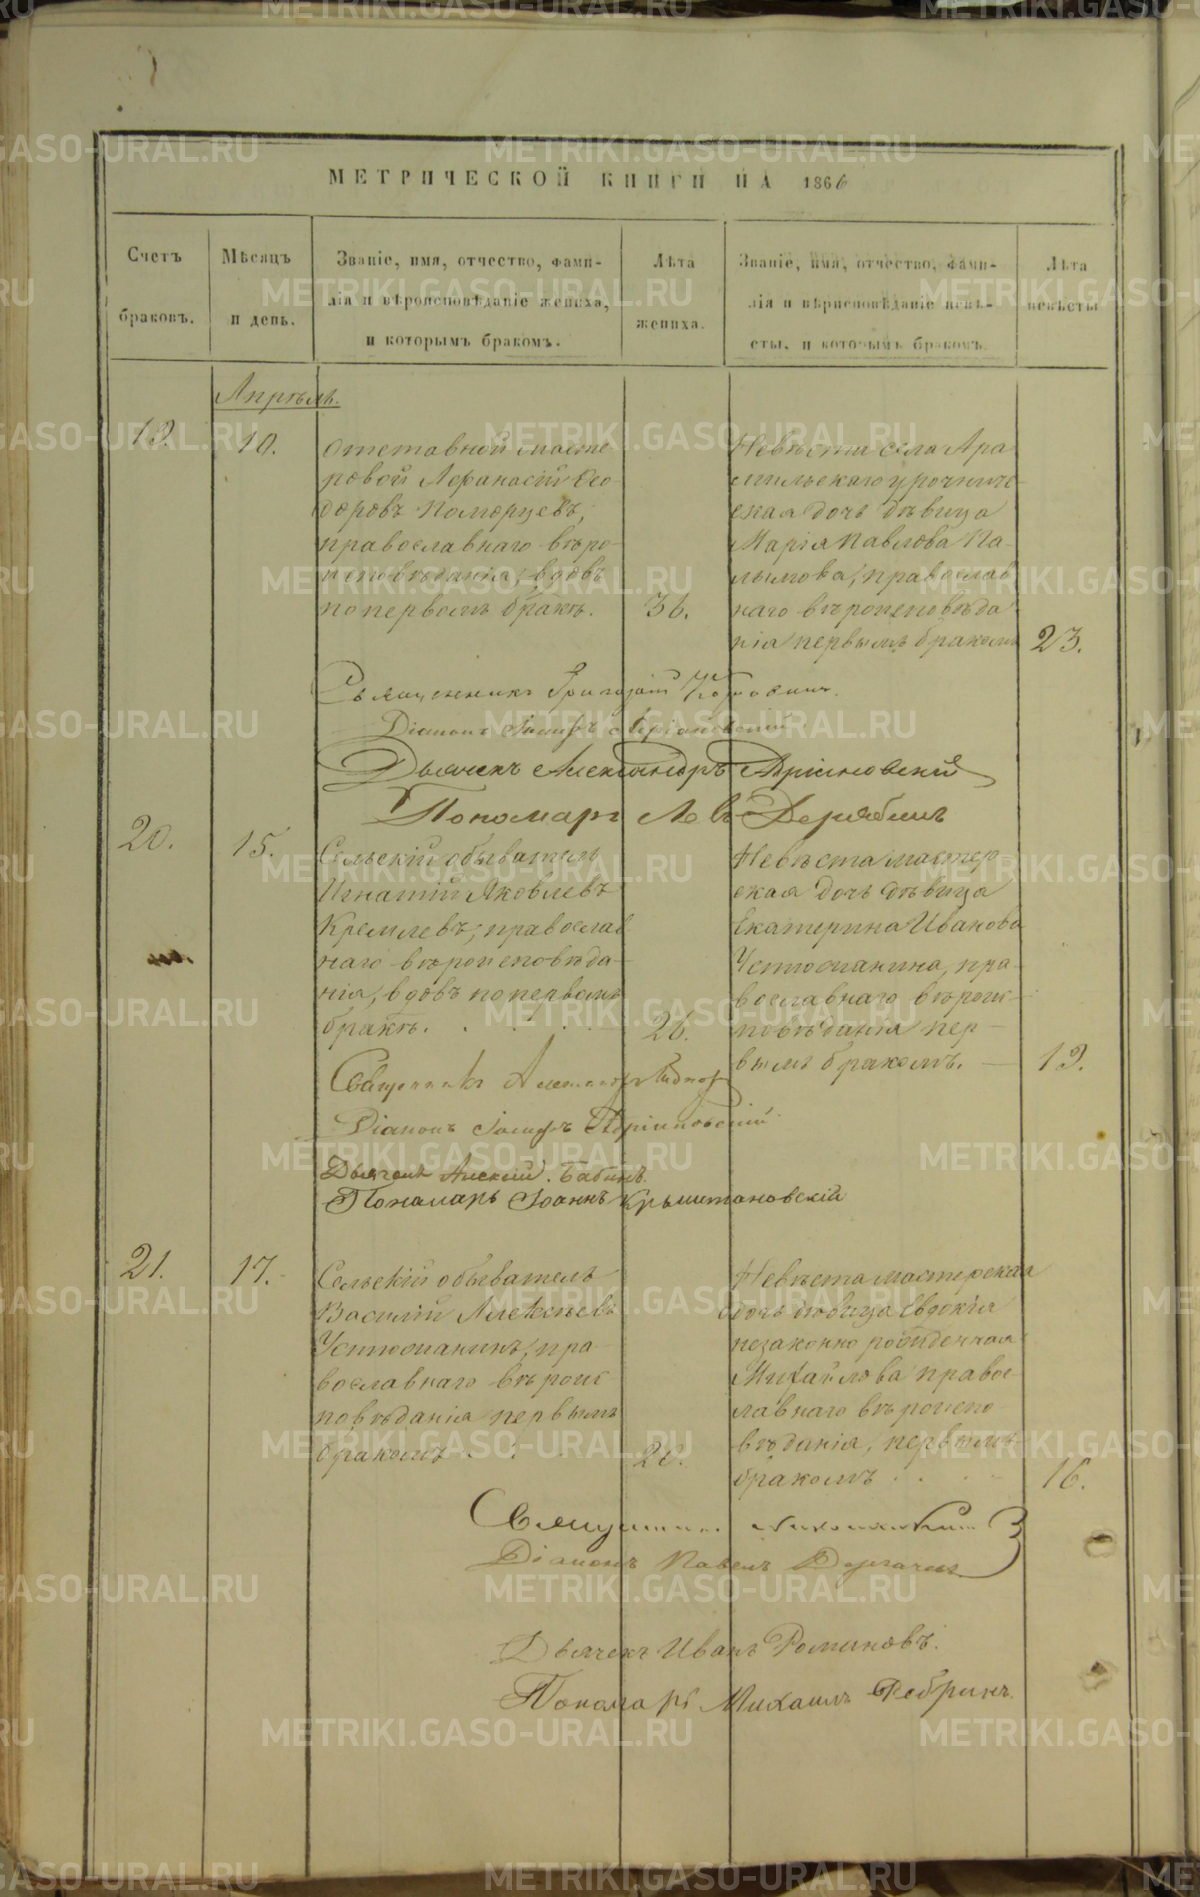 МЕТРИЧЕСКОЙ КНИГИ НА 1866
Счетъ браковъ.
Мѣсяцъ и день.
Званіе, имя, отчество, фами-
лія и вѣроисповѣданіе жениха,
и которымъ бракомъ.
Лѣта жениха.
Званіе, имя, отчество, фами-
лія и вѣрисповѣданіе невѣ-
сты, и которымъ бракомъ.
Лѣта невѣсты
Апрѣль.
19.
10.
Отставной масте-
ровой Афанасій Ѳео-
доровъ Поморцевъ,
православнаго вѣро-
исповѣданія, вдовъ
по первомъ бракѣ.
36.
Невѣста села Ара-
мильскаго урочниче-
ская дочь дѣвица
Марія Павлова Па-
лымова, православ
наго вѣроисповѣда
нія первымъ бракомъ
23.
Священникъ Григорій
Діаконъ Іосифъ Адріановскій
Дьячекъ Александръ Адріановскій
Пономарь Левъ Дерябинъ
20.
15.
Сельскій обыватель
Игнатій Яковлевъ
Кремлевъ, православ
наго вѣроисповѣда-
нія, вдовъ по первомъ
бракѣ.
26.
Невѣста мастер-
ская дочь дѣвица
Екатерина Иванова
Устюжанина, пра-
вославнаго вѣроис-
повѣданія пер-
вымъ бракомъ.
19.
Священникъ Александръ
Діаконъ Іосифъ Адріановскій
Дьячекъ Алексій Бабинъ
Пономарь Іоаннъ Крыжановскій
21.
17.
Сельскій обыватель
Василій Алексѣевъ
Устюжанинъ, пра-
вославнаго вѣроис-
повѣданія первымъ
бракомъ
20.
Невѣста мастерская
дочь дѣвица Евдокія
незаконно рожденная
Михайлова правос-
лавнаго вѣроиспо-
вѣданія, первымъ
бракомъ
16.
Священникъ
Діаконъ Павелъ
Дьячекъ Иванъ Романовъ.
Пономарь Михаилъ Ребринъ.
METRIKI.GASO-URAL.RU